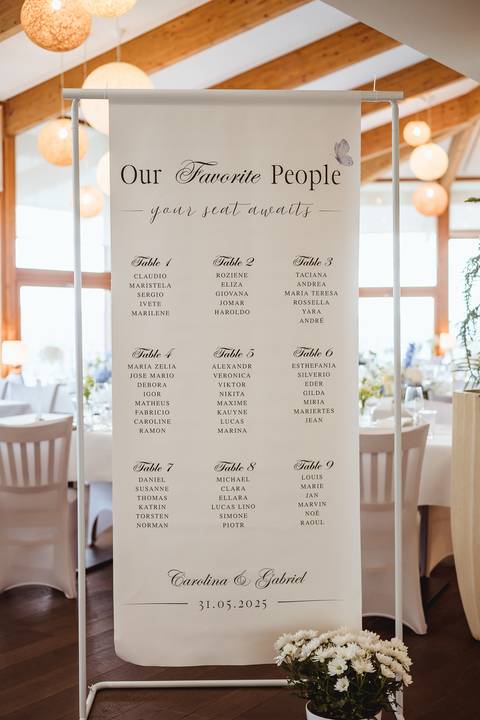 Our Favorite People
your seat awaits
Table 1
CLAUDIO
MARISTELA
SERGIO
IVETE
MARILENE
Table 2
ROZIENE
ELIZA
GIOVANA
JOMAR
HAROLDO
Table 3
TACIANA
ANDREA
MARIA TERESA
ROSSELLA
YARA
ANDRÉ
Table 4
MARIA ZELIA
JOSE MARIO
DEBORA
IGOR
MATHEUS
FABRICIO
CAROLINE
RAMON
Table 5
ALEXANDR
VERONICA
VIKTOR
NIKITA
MAXIME
KAUYNE
LUCAS
MARINA
Table 6
ESTHEFANIA
SILVERIO
EDER
GILDA
MIRIA
MARIERTES
JEAN
Table 7
DANIEL
SUSANNE
THOMAS
KATRIN
TORSTEN
NORMAN
Table 8
MICHAEL
CLARA
ELLARA
LUCAS LINO
SIMONE
PIOTR
Table 9
LOUIS
MARIE
JAN
MARVIN
NOÉ
RAOUL
Carolina & Gabriel
31.05.2025